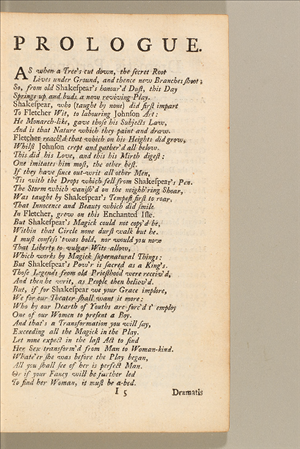 PROLOGUE.
AS when a Tree's cut down, the secret Root
Lives under Ground, and thence new Branches shoot;
So, from old Shakespear's honour'd Dust, this Day
Springs up and buds a new reviving Play.
Shakespear, who (taught by none) did first impart
To Fletcher Wit, to labouring Johnson Art:
He Monarch-like, gave those his Subjects Law,
And is that Nature which they paint and draw.
Fletcher reach'd that which on his Heights did grow,
Whilst Johnson crept and gather'd all below.
This did his Love, and this his Mirth digest:
One imitates him most, the other best.
If they have since out-writ all other Men,
'Tis with the Drops which fell from Shakespear's Pen.
The Storm which vanish'd on the neighb'ring Shear,
Was taught by Shakespear's Tempest first to roar.
That Innocence and Beauty which did smile
In Fletcher, grew on this Enchanted Isle.
But Shakespear's Magick could not copy'd be,
Within that Circle none durst walk but he.
I must confess 'twas bold, nor would you now
That Liberty to vulgar Wits allow,
Which works by Magick supernatural Things:
But Shakespear's Pow'r is sacred as a King's.
Those Legends from old Priesthood were receiv'd,
And then he writ, as People then believ'd.
But, if for Shakespear we your Grace implore,
We for our Theater shall want it more:
Who by our Dearth of Youths are forc'd t' employ
One of our Women to present a Boy.
And that's a Transformation you will say,
Exceeding all the Magick in the Play.
Let none expect in the last Act to find
Her Sex transform'd from Man to Woman-kind.
Whate'er she was before the Play began,
All you shall see of her is perfect Man.
Or if your Fancy will be further led
To find her Woman, it must be a-bed.
I 5 Dramatis